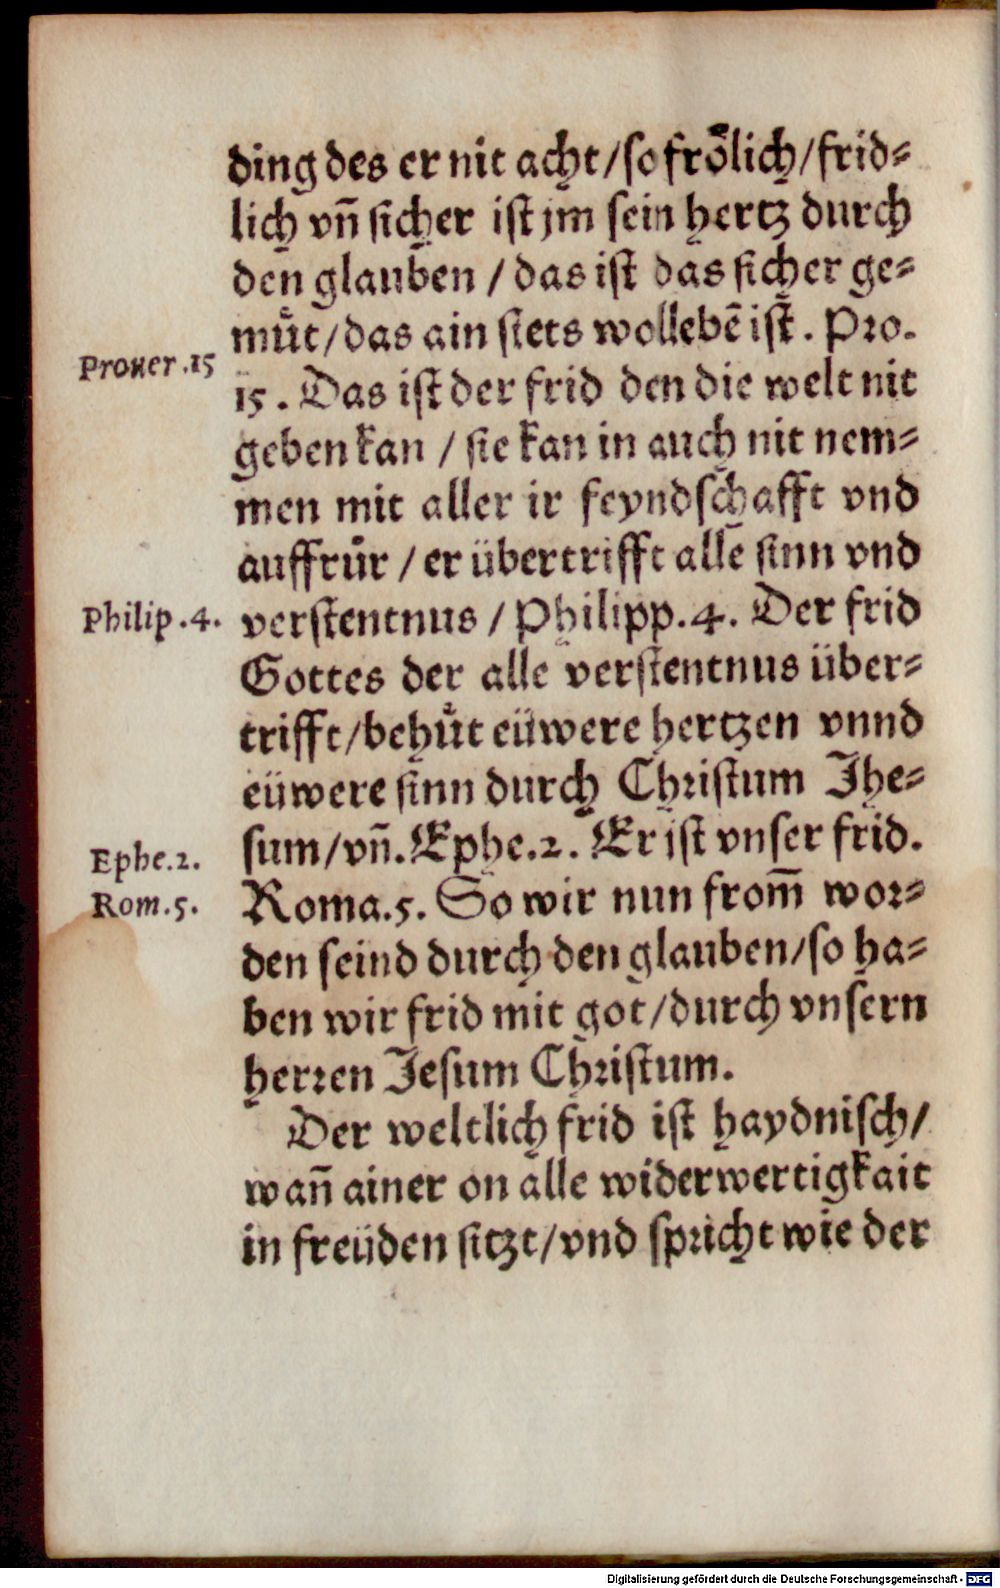 ding des er nit acht/so froͤlich/frid⸗
lich vñ sicher ist jm sein hertz durch
den glauben / das ist das sicher ge⸗
muͤt/das ain stets wollebẽ ist. Pro.
Prouer.15
15. Das ist der frid den die welt nit
geben kan / sie kan in auch nit nem⸗
men mit aller ir feyndschafft vnd
auffruͤr / er übertrifft alle sinn vnd
Philip.4.
verstentnus / Philipp.4. Der frid
Gottes der alle verstentnus über⸗
trifft/behuͤt eüwere hertzen vnnd
eüwere sinn durch Christum Jhe⸗
sum/vñ. Ephe.2. Er ist vnser frid.
Ephe.2.
Roma.5. So wir nun from̃ wor⸗
Rom.5.
den seind durch den glauben/so ha⸗
ben wir frid mit got/durch vnsern
herren Jesum Christum.
Der weltlich frid ist haydnisch/
wañ ainer on alle widerwertigkait
in freüden sitzt/vnd spricht wie der
Digitalisierung gefördert durch die Deutsche Forschungsgemeinschaft - DFG